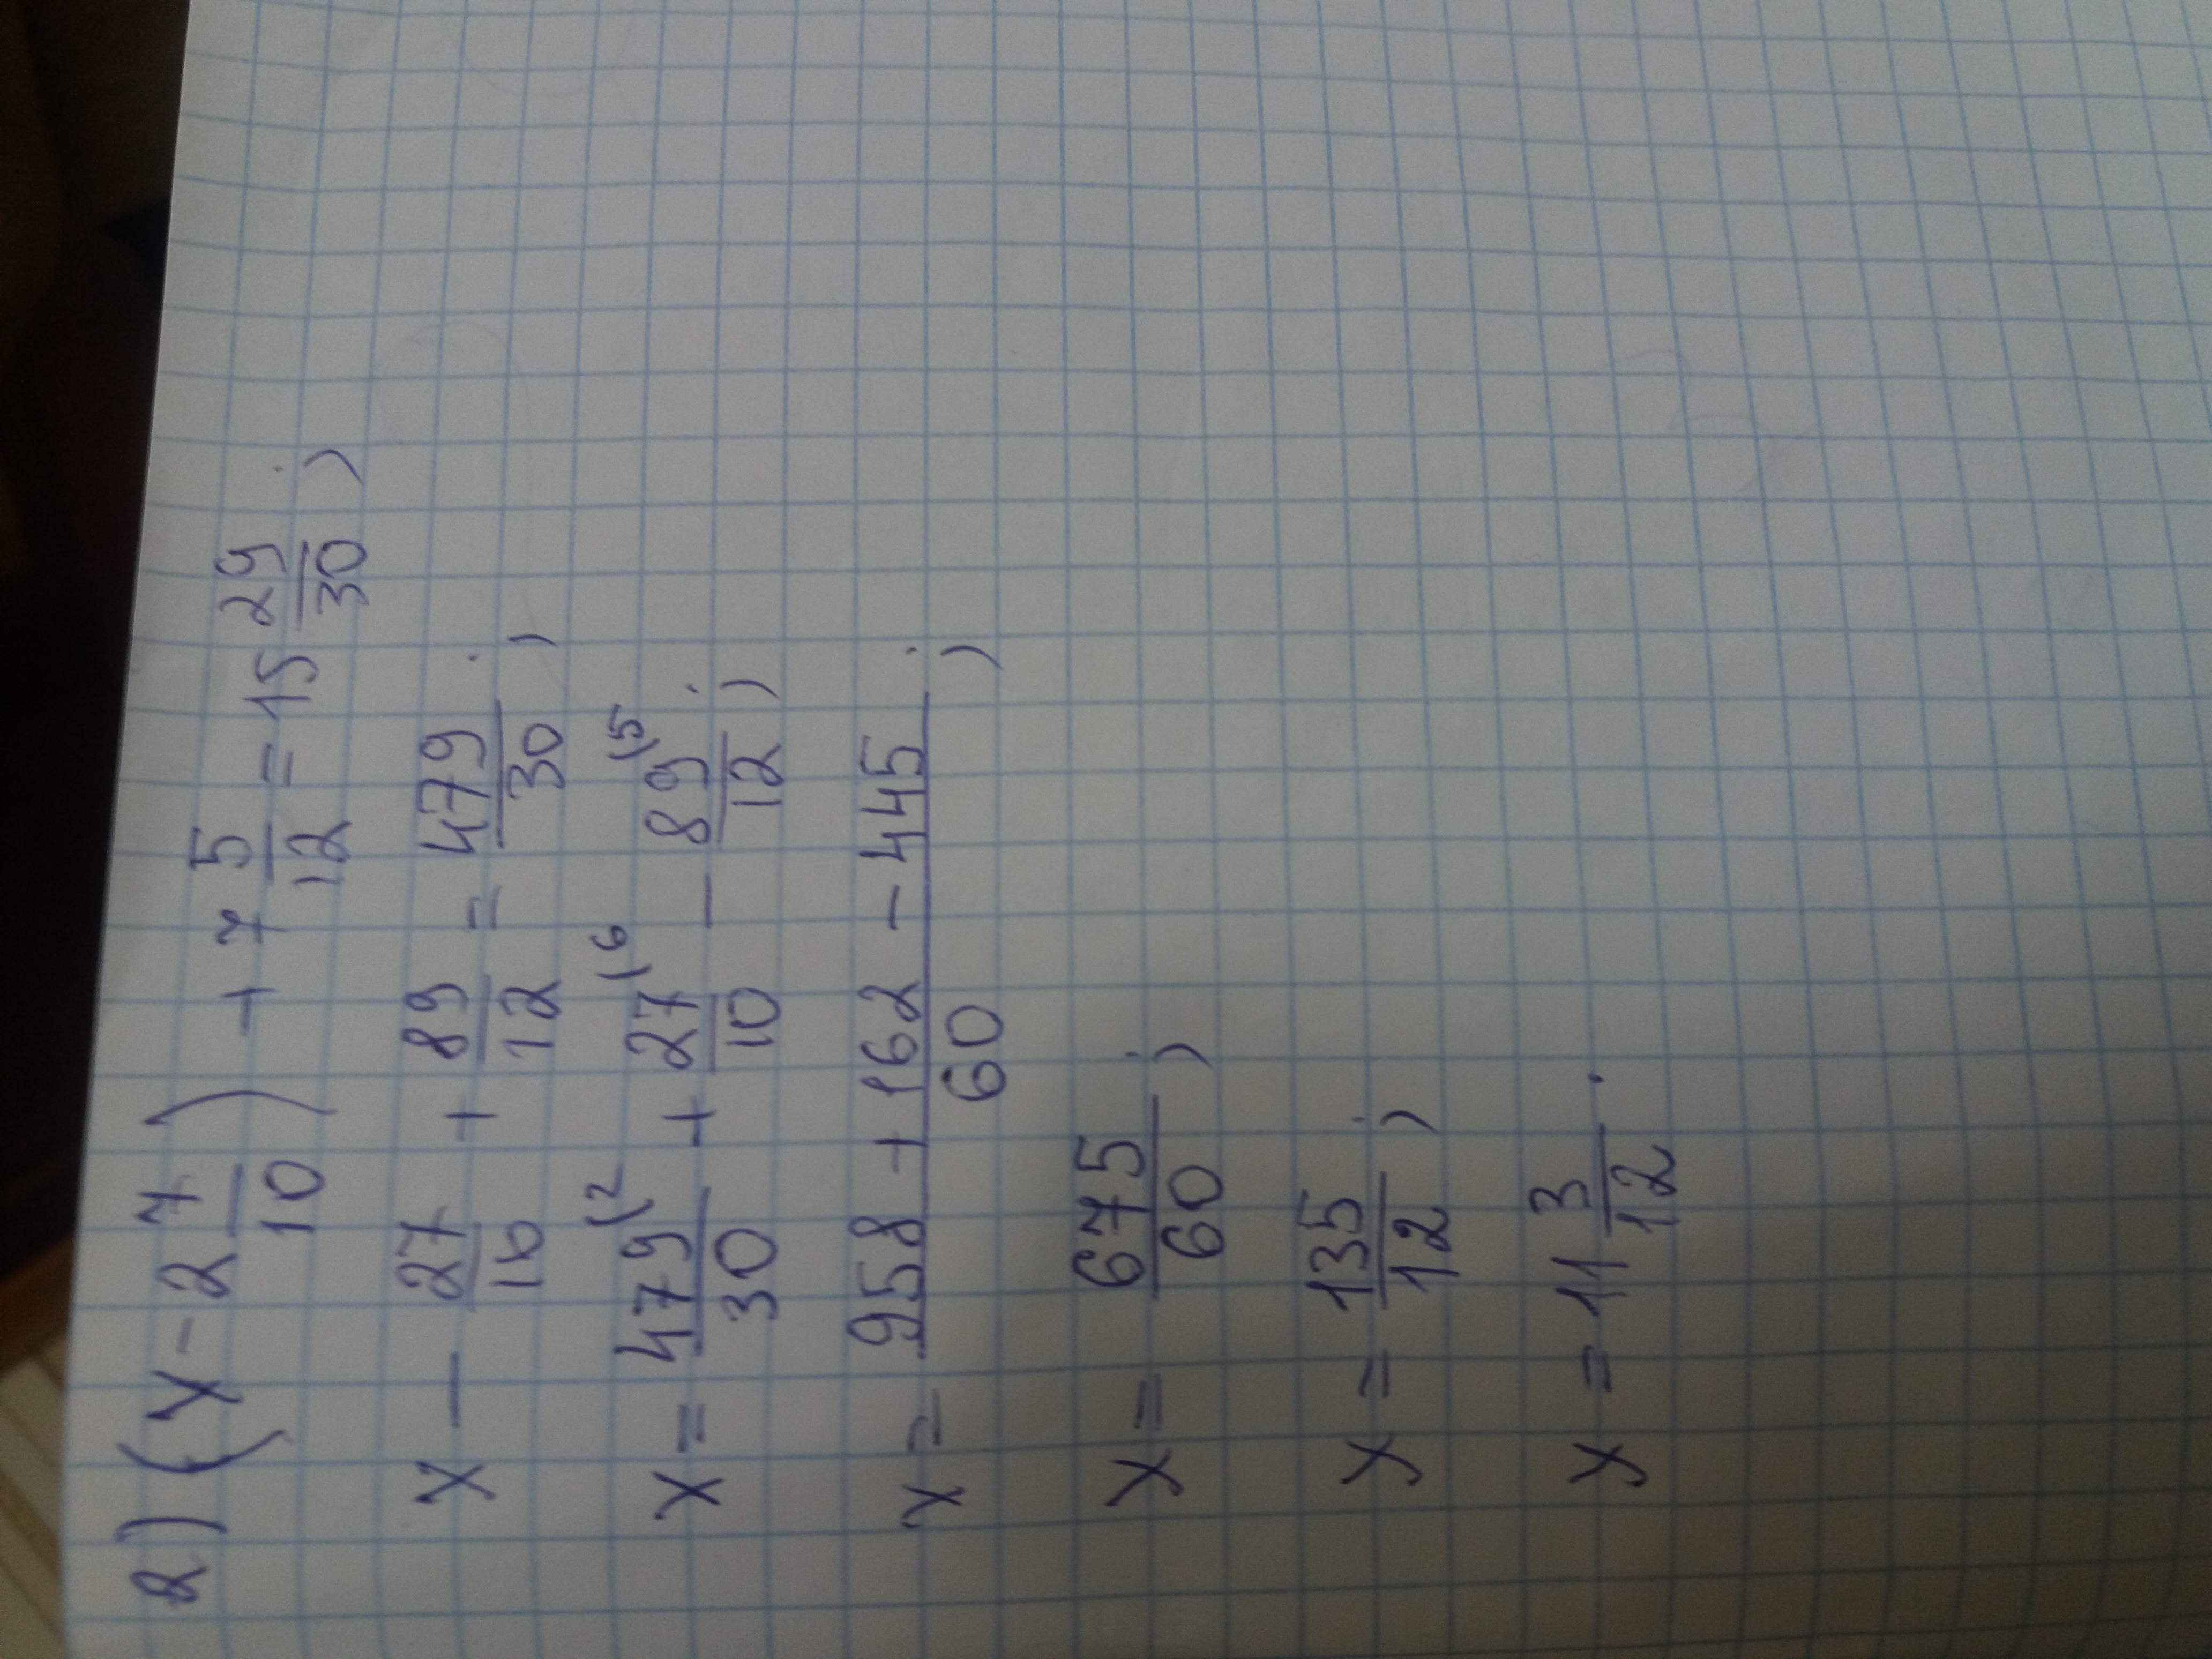 2) (x - 2 7/10) + 7 5/12 = 15 29/30 ;
x - 27/10 + 89/12 = 479/30 ;
x = 479/30 (2 + 27/10 (6 - 89/12 (5 ;
x = (958 + 162 - 445)/60 ;
x = 675/60 ;
x = 135/12 ;
x = 11 3/12 .